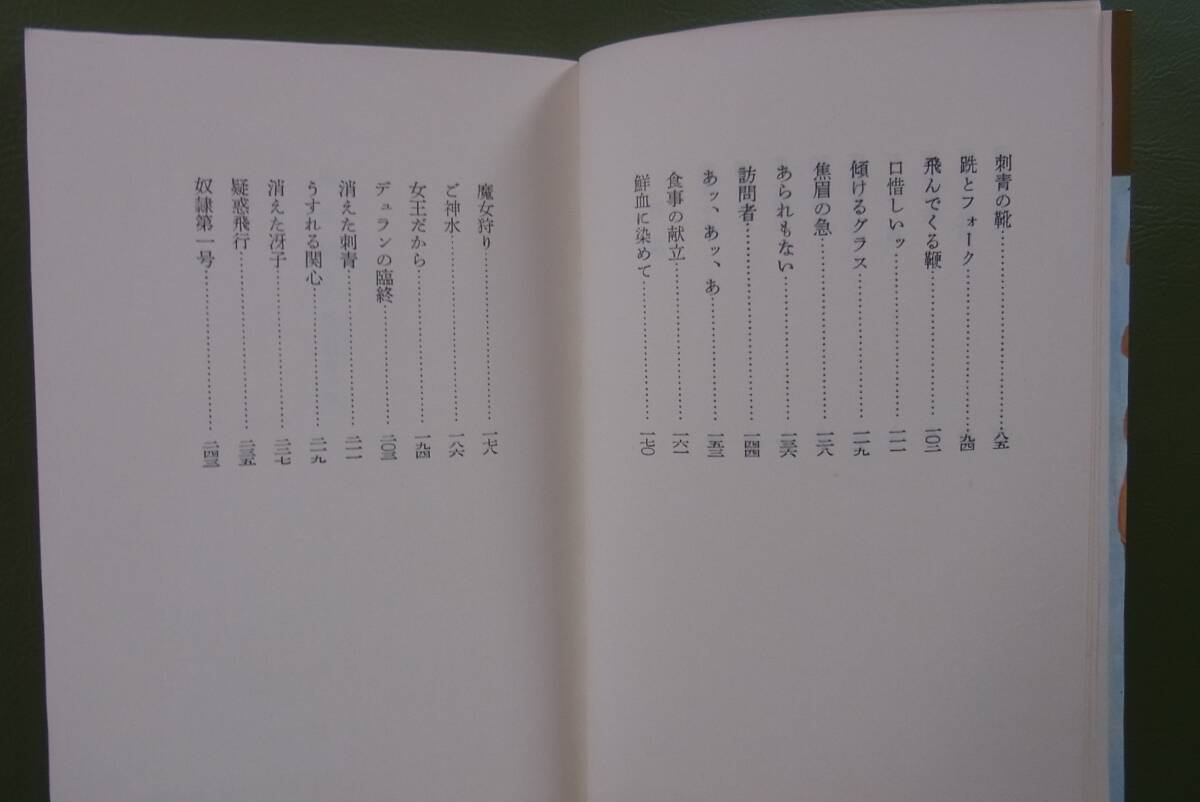 刺青の靴……………………八五
跣とフォーク……………………九四
飛んでくる鞭……………………一〇二
口惜しいッ……………………一一一
傾けるグラス……………………一一九
焦眉の急……………………一二八
あられもない……………………一三六
訪問者……………………一四四
あッ、あッ、あ……………………一五三
食事の献立……………………一六一
鮮血に染めて……………………一七〇
魔女狩り……………………一七八
ご神水……………………一八六
女王だから……………………一九四
デュランの臨終……………………二〇三
消えた刺青……………………二一一
うすれる関心……………………二一九
消えた冴子……………………二二七
疑惑飛行……………………二三五
奴隷第一号……………………二四三